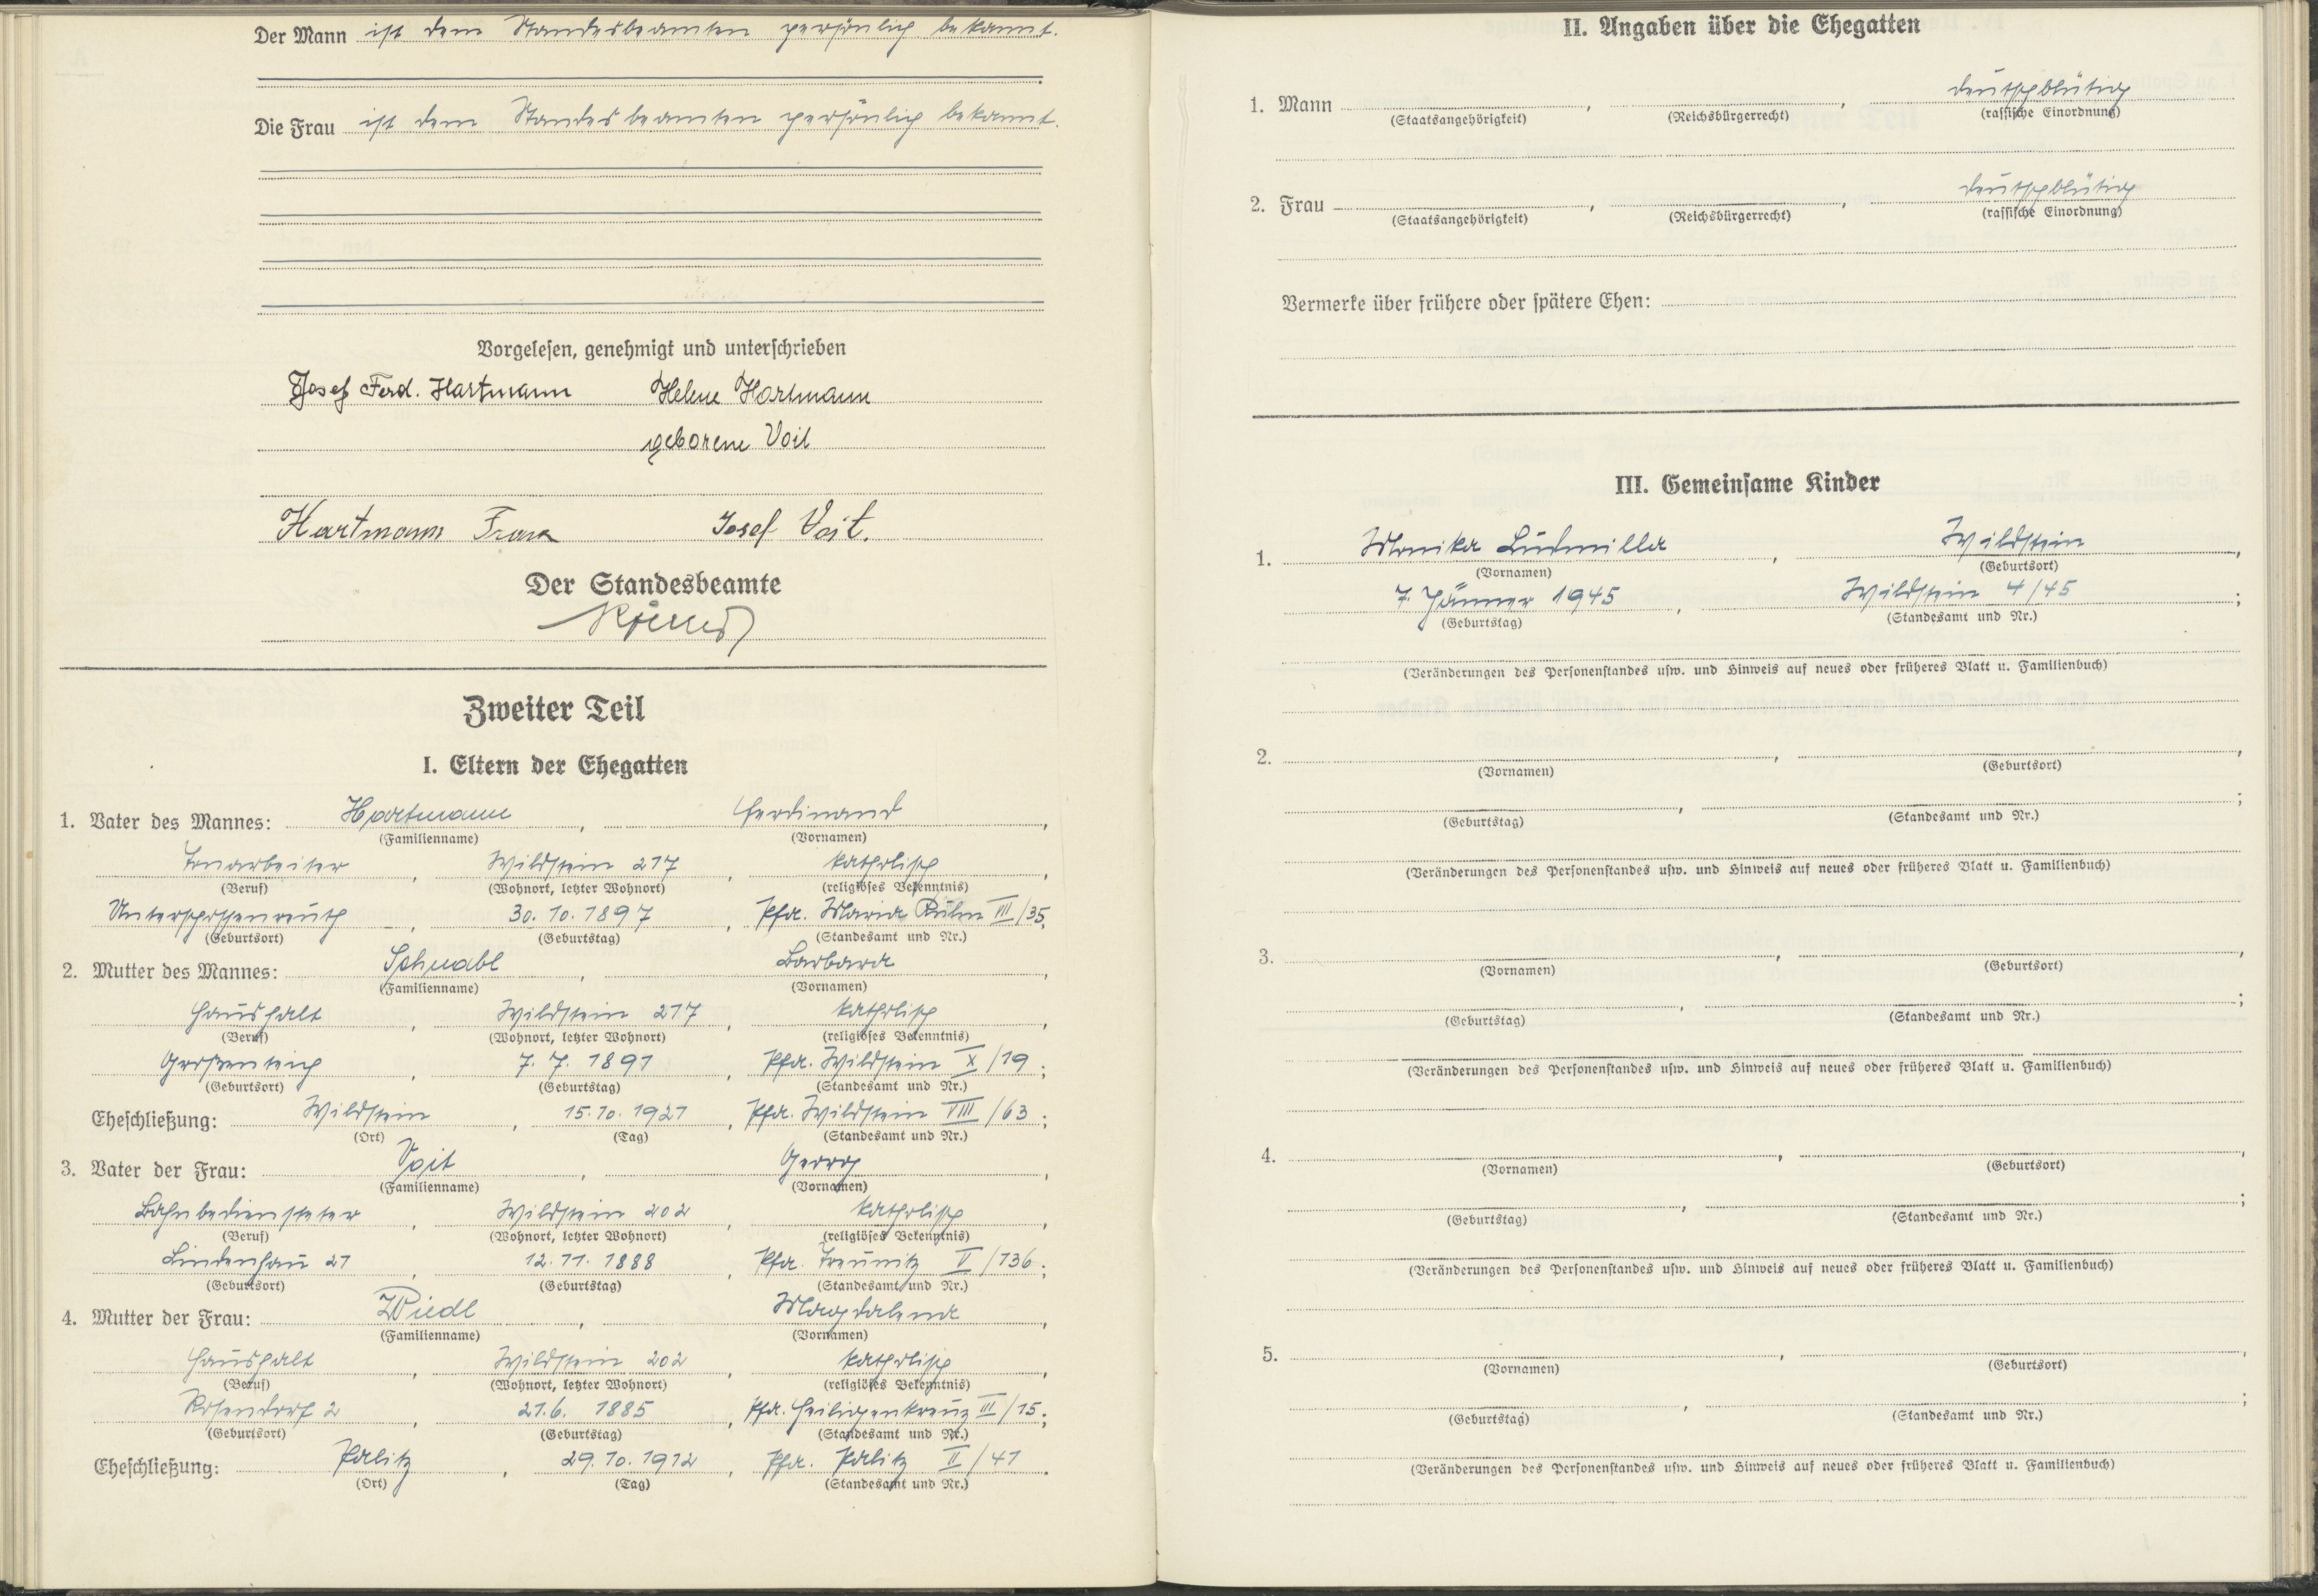 Der Mann ist dem Standesbeamten persönlich bekannt.
Die Frau ist dem Standesbeamten persönlich bekannt.
Vorgelesen, genehmigt und unterschrieben
Josef Ferd. Hartmann Helene Hartmann
geborene Voit
Hartmann Franz Josef Voit.
Der Standesbeamte
Zweiter Teil
I. Eltern der Ehegatten
1. Vater des Mannes: Hartmann, Ferdinand,
(Familienname) (Vornamen)
Tonarbeiter, Wildstein 217, katholisch,
(Beruf) (Wohnort, letzter Wohnort) (religiöses Bekenntnis)
Unterschossenreuth, 30. 10. 1897, Pfa. Maria Kulm VII/35;
(Geburtsort) (Geburtstag) (Standesamt und Nr.)
2. Mutter des Mannes: Schnabl, Barbara,
(Familienname) (Vornamen)
Haushalt, Wildstein 217, katholisch,
(Beruf) (Wohnort, letzter Wohnort) (religiöses Bekenntnis)
Großenteich, 7. 7. 1891, Pfa. Wildstein X/19;
(Geburtsort) (Geburtstag) (Standesamt und Nr.)
Eheschließung: Wildstein, 15. 10. 1921, Pfa. Wildstein VIII/63;
(Ort) (Tag) (Standesamt und Nr.)
3. Vater der Frau: Voit, Georg,
(Familienname) (Vornamen)
Bahnbediensteter, Wildstein 202, katholisch,
(Beruf) (Wohnort, letzter Wohnort) (religiöses Bekenntnis)
Lindenhau 21, 12. 11. 1888, Pfa. Treunitz V/136;
(Geburtsort) (Geburtstag) (Standesamt und Nr.)
4. Mutter der Frau: Wiedl, Magdalena,
(Familienname) (Vornamen)
Haushalt, Wildstein 202, katholisch,
(Beruf) (Wohnort, letzter Wohnort) (religiöses Bekenntnis)
Rosendorf 2, 21. 6. 1885, Pfa. Heiligenkreuz III/15;
(Geburtsort) (Geburtstag) (Standesamt und Nr.)
Eheschließung: Palitz, 29. 10. 1912, Pfa. Palitz II/41.
(Ort) (Tag) (Standesamt und Nr.)
II. Angaben über die Ehegatten
1. Mann , , deutschblütig
(Staatsangehörigkeit) (Reichsbürgerrecht) (rassische Einordnung)
2. Frau , , deutschblütig
(Staatsangehörigkeit) (Reichsbürgerrecht) (rassische Einordnung)
Vermerke über frühere oder spätere Ehen:
III. Gemeinsame Kinder
1. Monika Ludmilla, Wildstein,
(Vornamen) (Geburtsort)
7. Jänner 1945, Wildstein 4/45;
(Geburtstag) (Standesamt und Nr.)
(Veränderungen des Personenstandes usw. und Hinweis auf neues oder früheres Blatt u. Familienbuch)
2. , ,
(Vornamen) (Geburtsort)
, ;
(Geburtstag) (Standesamt und Nr.)
(Veränderungen des Personenstandes usw. und Hinweis auf neues oder früheres Blatt u. Familienbuch)
3. , ,
(Vornamen) (Geburtsort)
, ;
(Geburtstag) (Standesamt und Nr.)
(Veränderungen des Personenstandes usw. und Hinweis auf neues oder früheres Blatt u. Familienbuch)
4. , ,
(Vornamen) (Geburtsort)
, ;
(Geburtstag) (Standesamt und Nr.)
(Veränderungen des Personenstandes usw. und Hinweis auf neues oder früheres Blatt u. Familienbuch)
5. , ,
(Vornamen) (Geburtsort)
, ;
(Geburtstag) (Standesamt und Nr.)
(Veränderungen des Personenstandes usw. und Hinweis auf neues oder früheres Blatt u. Familienbuch)